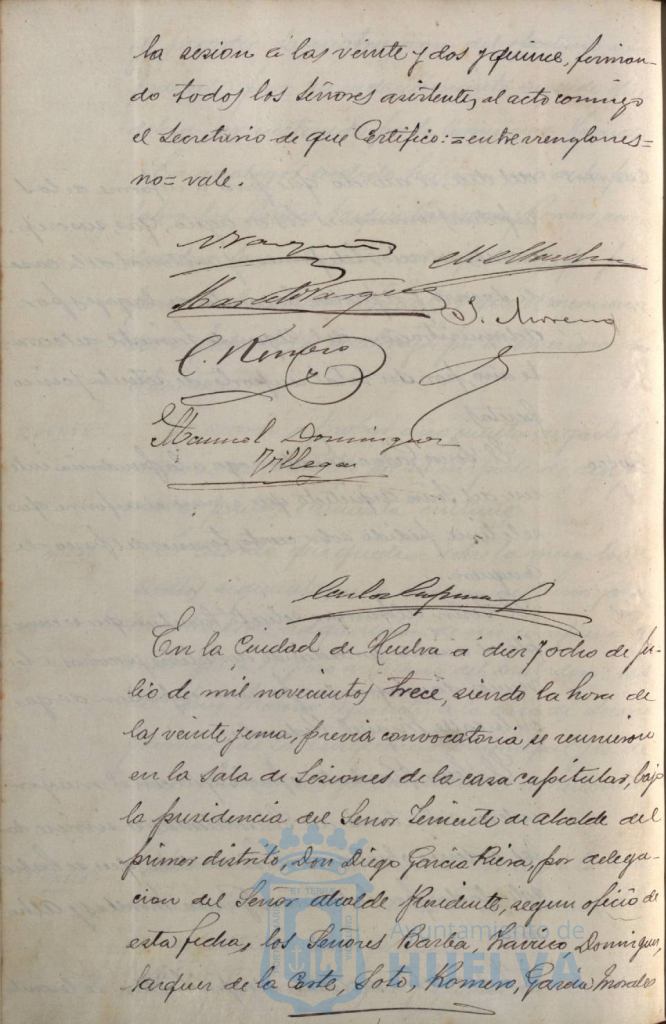 la sesion á las veinte y dos y quince, firman-
do todos los Señores asistentes, al acto conmigo
el Secretario de que Certifico:=entrerrenglones=
no=vale.
J. Moreno
C. Romero
Manuel Dominguez
Villegas
En la Ciudad de Huelva á diez y ocho de Ju-
lio de mil novecientos trece, siendo la hora de
las veinte y una, previa convocatoria, se reunieron
en la Sala de Sesiones de la casa capitular, bajo
la presidencia del Señor Teniente de alcalde del
primer distrito, Don Diego Garcia Riera, por delega-
cion del Señor alcalde Presidente, segun oficio de
esta fecha, los Señores Barba, Dominguez,
Vazquez de la Corte, Soto, Romero, Garcia Morales
Ayuntamiento de
HUELVA